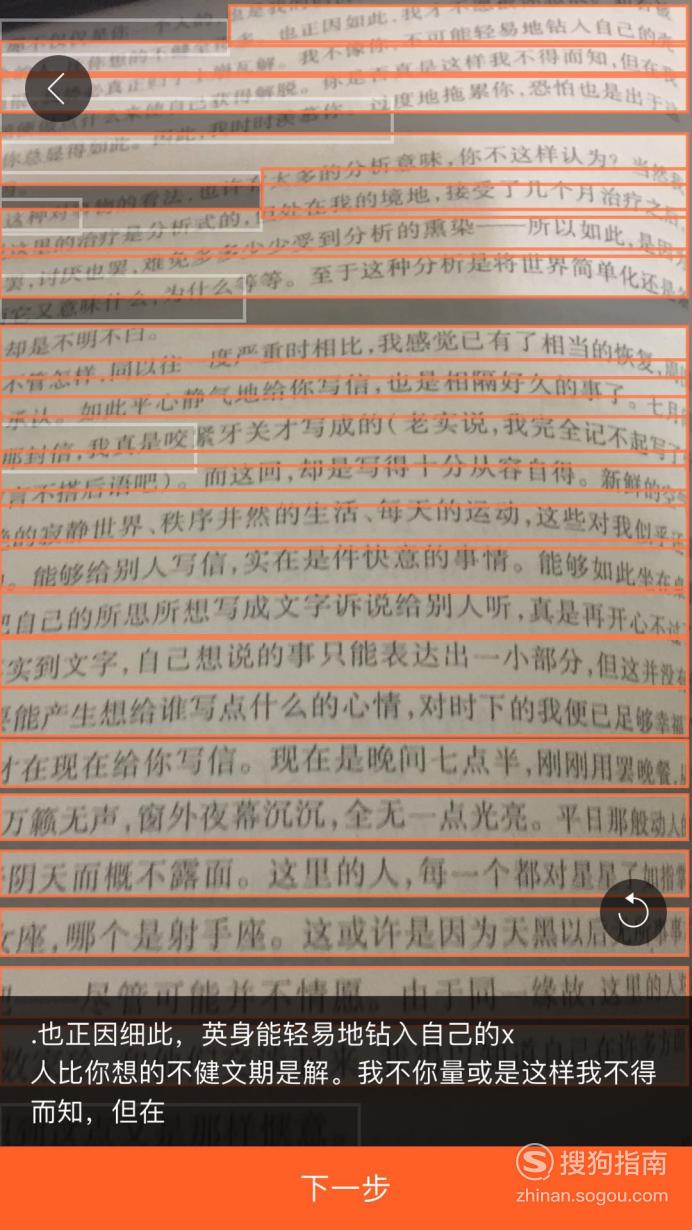 也正因如此,我才
不可能轻易地钻入自己的壳
真正归于土崩瓦解。我不像你,不
来使自己获得解脱。你是否真是这样我不得而知,但在我
你总显得如此。因此,我时时羡慕你。过度地拖累你,恐怕也是出于这
这种对事物的看法,也许有太多的分析意味,你不这样认为?当然我
这里的治疗是分析式的,但处在我的境地,接受了几个月治疗之后,
罢,讨厌也罢,难免多多少少受到分析的熏染——所以如此,是因为
它又意味什么,为什么等等。至于这种分析是将世界简单化还是
却是不明不白。
不管怎样,同以往一度严重时相比,我感觉已有了相当的恢复,周围
承认。如此平心静气地给你写信,也是相隔好久的事了。七月
那封信,我真是咬紧牙关才写成的(老实说,我完全记不起写了
言不搭后语吧)。而这回,却是写得十分从容自得。新鲜的空
的寂静世界、秩序井然的生活、每天的运动,这些对我似乎还
。能够给别人写信,实在是件快意的事情。能够如此坐在桌
把自己的所思所想写成文字诉说给别人听,真是再开心不过
实到文字,自己想说的事只能表达出一小部分,但这并没有
要能产生想给谁写点什么的心情,对时下的我便已足够幸福
才在现在给你写信。现在是晚间七点半,刚刚用罢晚餐,
万籁无声,窗外夜幕沉沉,全无一点光亮。平日那般动人的
阴天而概不露面。这里的人,每一个都对星星了如指掌
女座,哪个是射手座。这或许是因为天黑以后无所事事
——尽管可能并不情愿。由于同一缘故,这里的人对
.也正因细此，英身能轻易地钻入自己的x
人比你想的不健文期是解。我不你量或是这样我不得
而知，但在
下一步
搜狗指南
zhinan.sogou.com